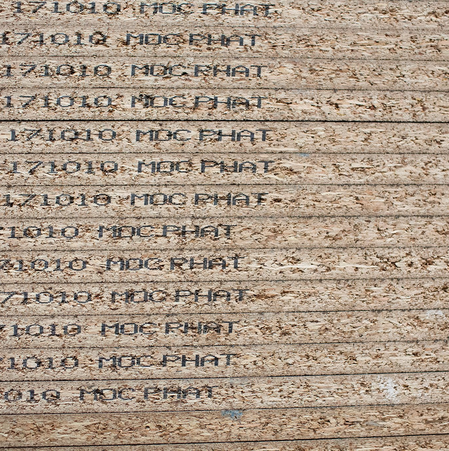 171010 MOC PHAT
171010 MOC PHAT
171010 MOC PHAT
171010 MOC PHAT
171010 MOC PHAT
171010 MOC PHAT
171010 MOC PHAT
71010 MOC PHAT
71010 MOC PHAT
71010 MOC PHAT
71010 MOC PHAT
71010 MOC PHAT
010 MOC PHAT